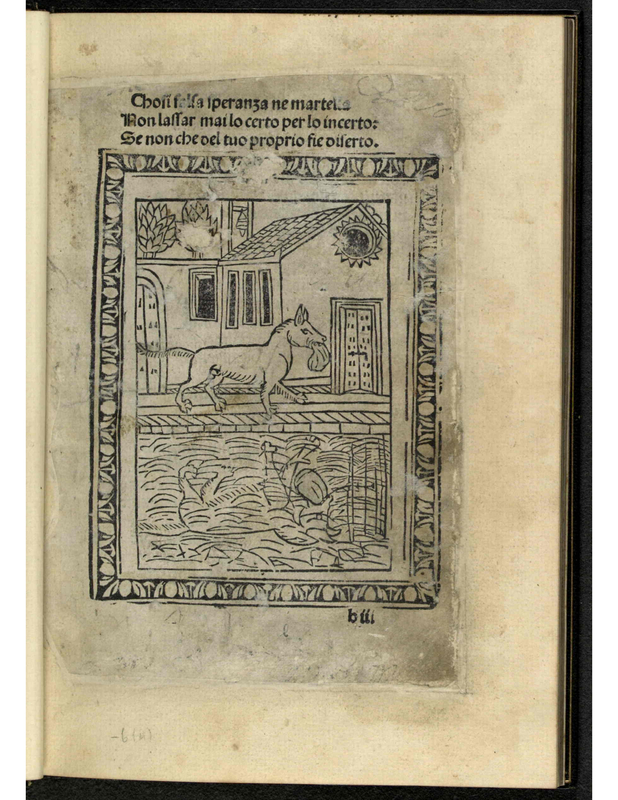 Chosi falsa speranza ne martella
Non lassar mai lo certo per lo incerto:
Se non che del tuo proprio fie diserto.
b iii